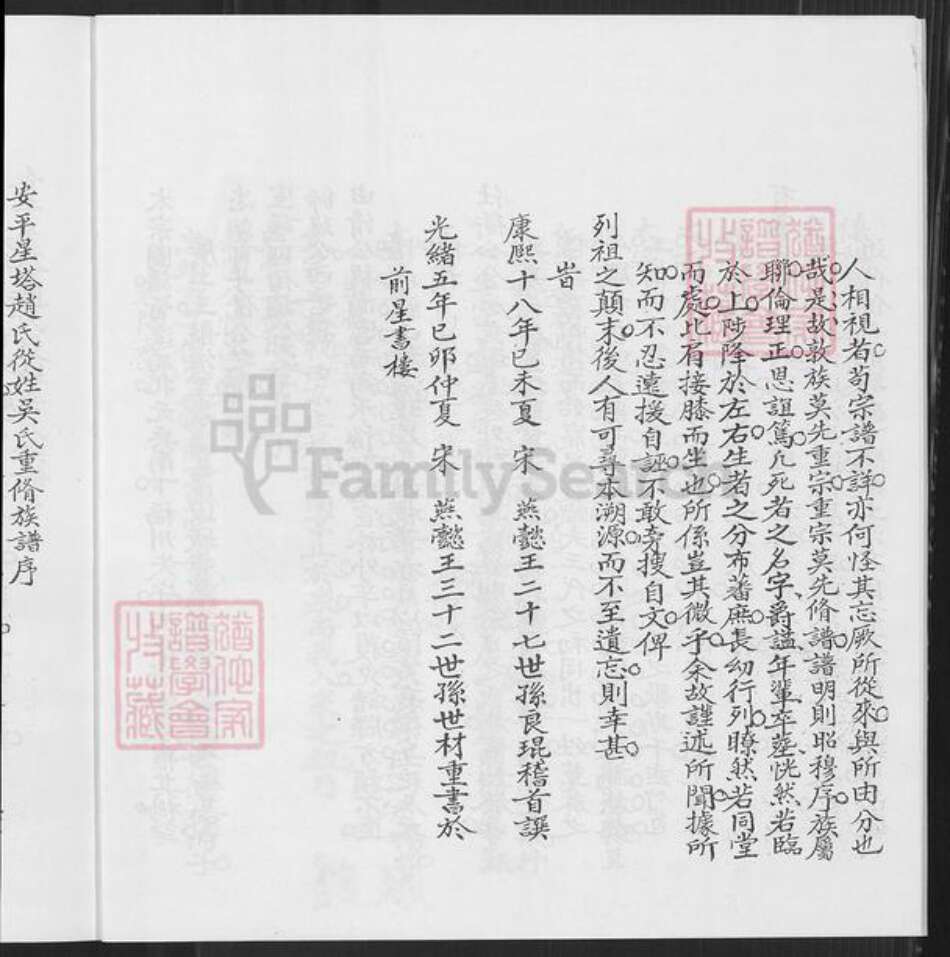 人相視者苟宗譜不詳亦何怪其忘厥所從來與所由分也
哉是故敦族莫先重宗重宗莫先脩譜譜明則昭穆序族屬
聯倫理正恩誼篤凡死者之名字爵諡年輩卒塟恍然若臨
於上陟降於左右生者之分布蕃庶長幼行列瞭然若同堂
而處比肩接膝而坐也所係豈其微乎余故謹述所聞據所
知而不忍遠援自誣不敢旁搜自文俾
列祖之顛末後人有可尋本溯源而不至遺忘則幸甚
旹
康熙十八年已未夏 宋 燕懿王二十七世孫良琨稽首譔
光緒五年已卯仲夏 宋 燕懿王三十二世孫世材重書於
前星書樓
安平星塔趙氏從姓吳氏重脩族譜序
譜學會
收藏
譜學會
收藏
FamilySearch